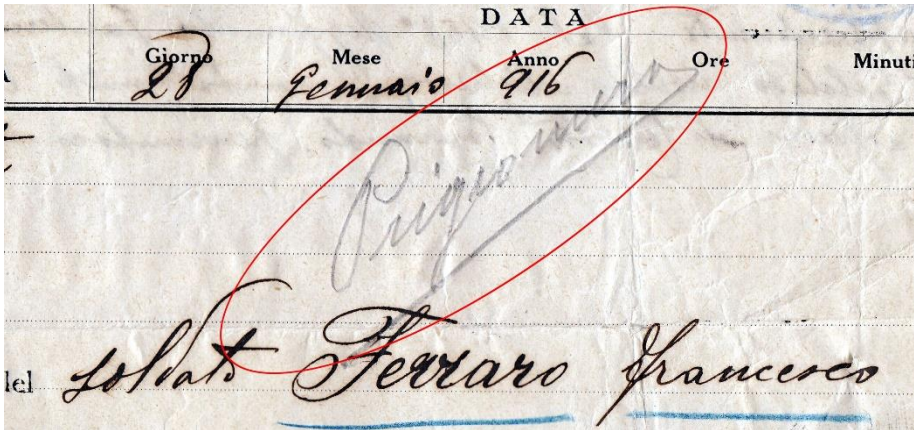 DATA
Giorno Mese Anno Ore Minuti
28 Gennaio 916
Prigioniero
del soldato Ferraro Francesco